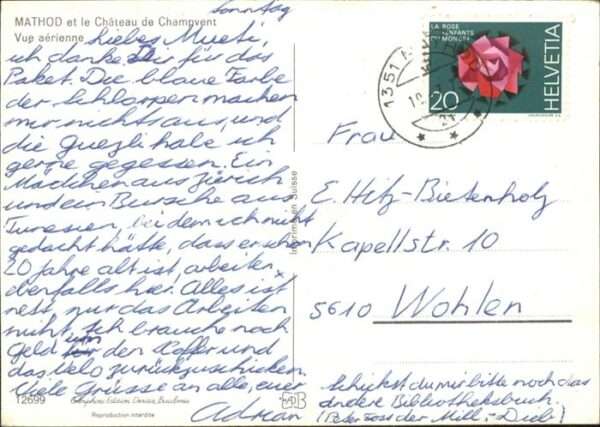 MATHOD et le Château de Champvent
Vue aérienne
Sonntag
Liebes Mueti,
ich danke Dir für das
Paket. Die blaue Farbe
der Schlarpen machen
mir nichts aus, und
die Guezli habe ich
gerne gegessen. Ein
Mädchen aus Zürich
und ein Bursche aus
Tunesien, bei dem ich nicht
gedacht hätte, dass er schon
20 Jahre alt ist, arbeiten
ebenfalls hier. Alles ist
nett, nur das Arbeiten
nicht. Ich brauche noch
Geld um den Koffer und
das Velo zurückzuschicken.
Viele Grüsse an alle, euer
Adrian
Schickst du mir bitte noch das
andere Bibliotheksbuch.
(Peter der Mill.-Dieb)
Frau
E. Hitz-Bietenholz
Kapellstr. 10
5610 Wohlen
LA ROSE
D'ENFANTS
DU MONDE
20
HELVETIA
1351
Imprimé en Suisse
12699
Edition
Reproduction interdite